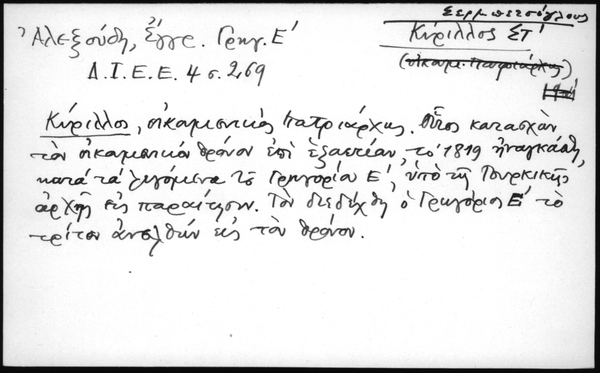 Σερμπετσόγλους
Ἀλεξούδη, Ἔγγρ. Γρηγ. Ε'
Κύριλλος ΣΤ'
Δ.Ι.Ε.Ε. 4 σ. 269
(οἰκουμ. Πατριάρχης)
Κύριλλος, οἰκουμενικὸς Πατριάρχης. Οὗτος κατασχὼν
τὸν οἰκουμενικὸν θρόνον ἐπὶ ἑξαετίαν, τὸ 1819 ἠναγκάσθη,
κατὰ τὰ λεγόμενα τοῦ Γρηγορίου Ε', ὑπὸ τῆς Τουρκικῆς
ἀρχῆς εἰς παραίτησιν. Τὸν διεδέχθη ὁ Γρηγόριος Ε' τὸ
τρίτον ἀνελθὼν εἰς τὸν θρόνον.